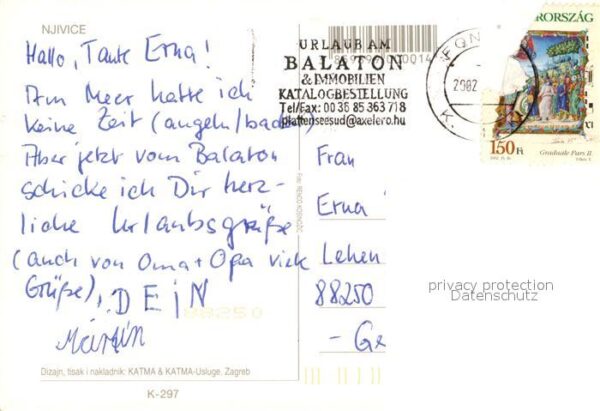 NJIVICE
Hallo, Tante Erna!
Am Meer hatte ich
keine Zeit (angeln/baden
Aber jetzt vom Balaton
schicke ich Dir herz-
liche Urlaubsgrüße
(auch von Oma + Opa viele
Grüße), DEIN
Martin
88250
Dizajn, tisak i nakladnik: KATMA & KATMA-Usluge, Zagreb
K-297
URLAUB AM
BALATON
& IMMOBILIEN
KATALOGBESTELLUNG
Tel/Fax: 00 36 85 363 718
plattenseesud@axelero.hu
RORSZÁG
150 Ft
Graduale Pars II.
Frau
Erna
Lehen
88250
- Ge
privacy protection
Datenschutz